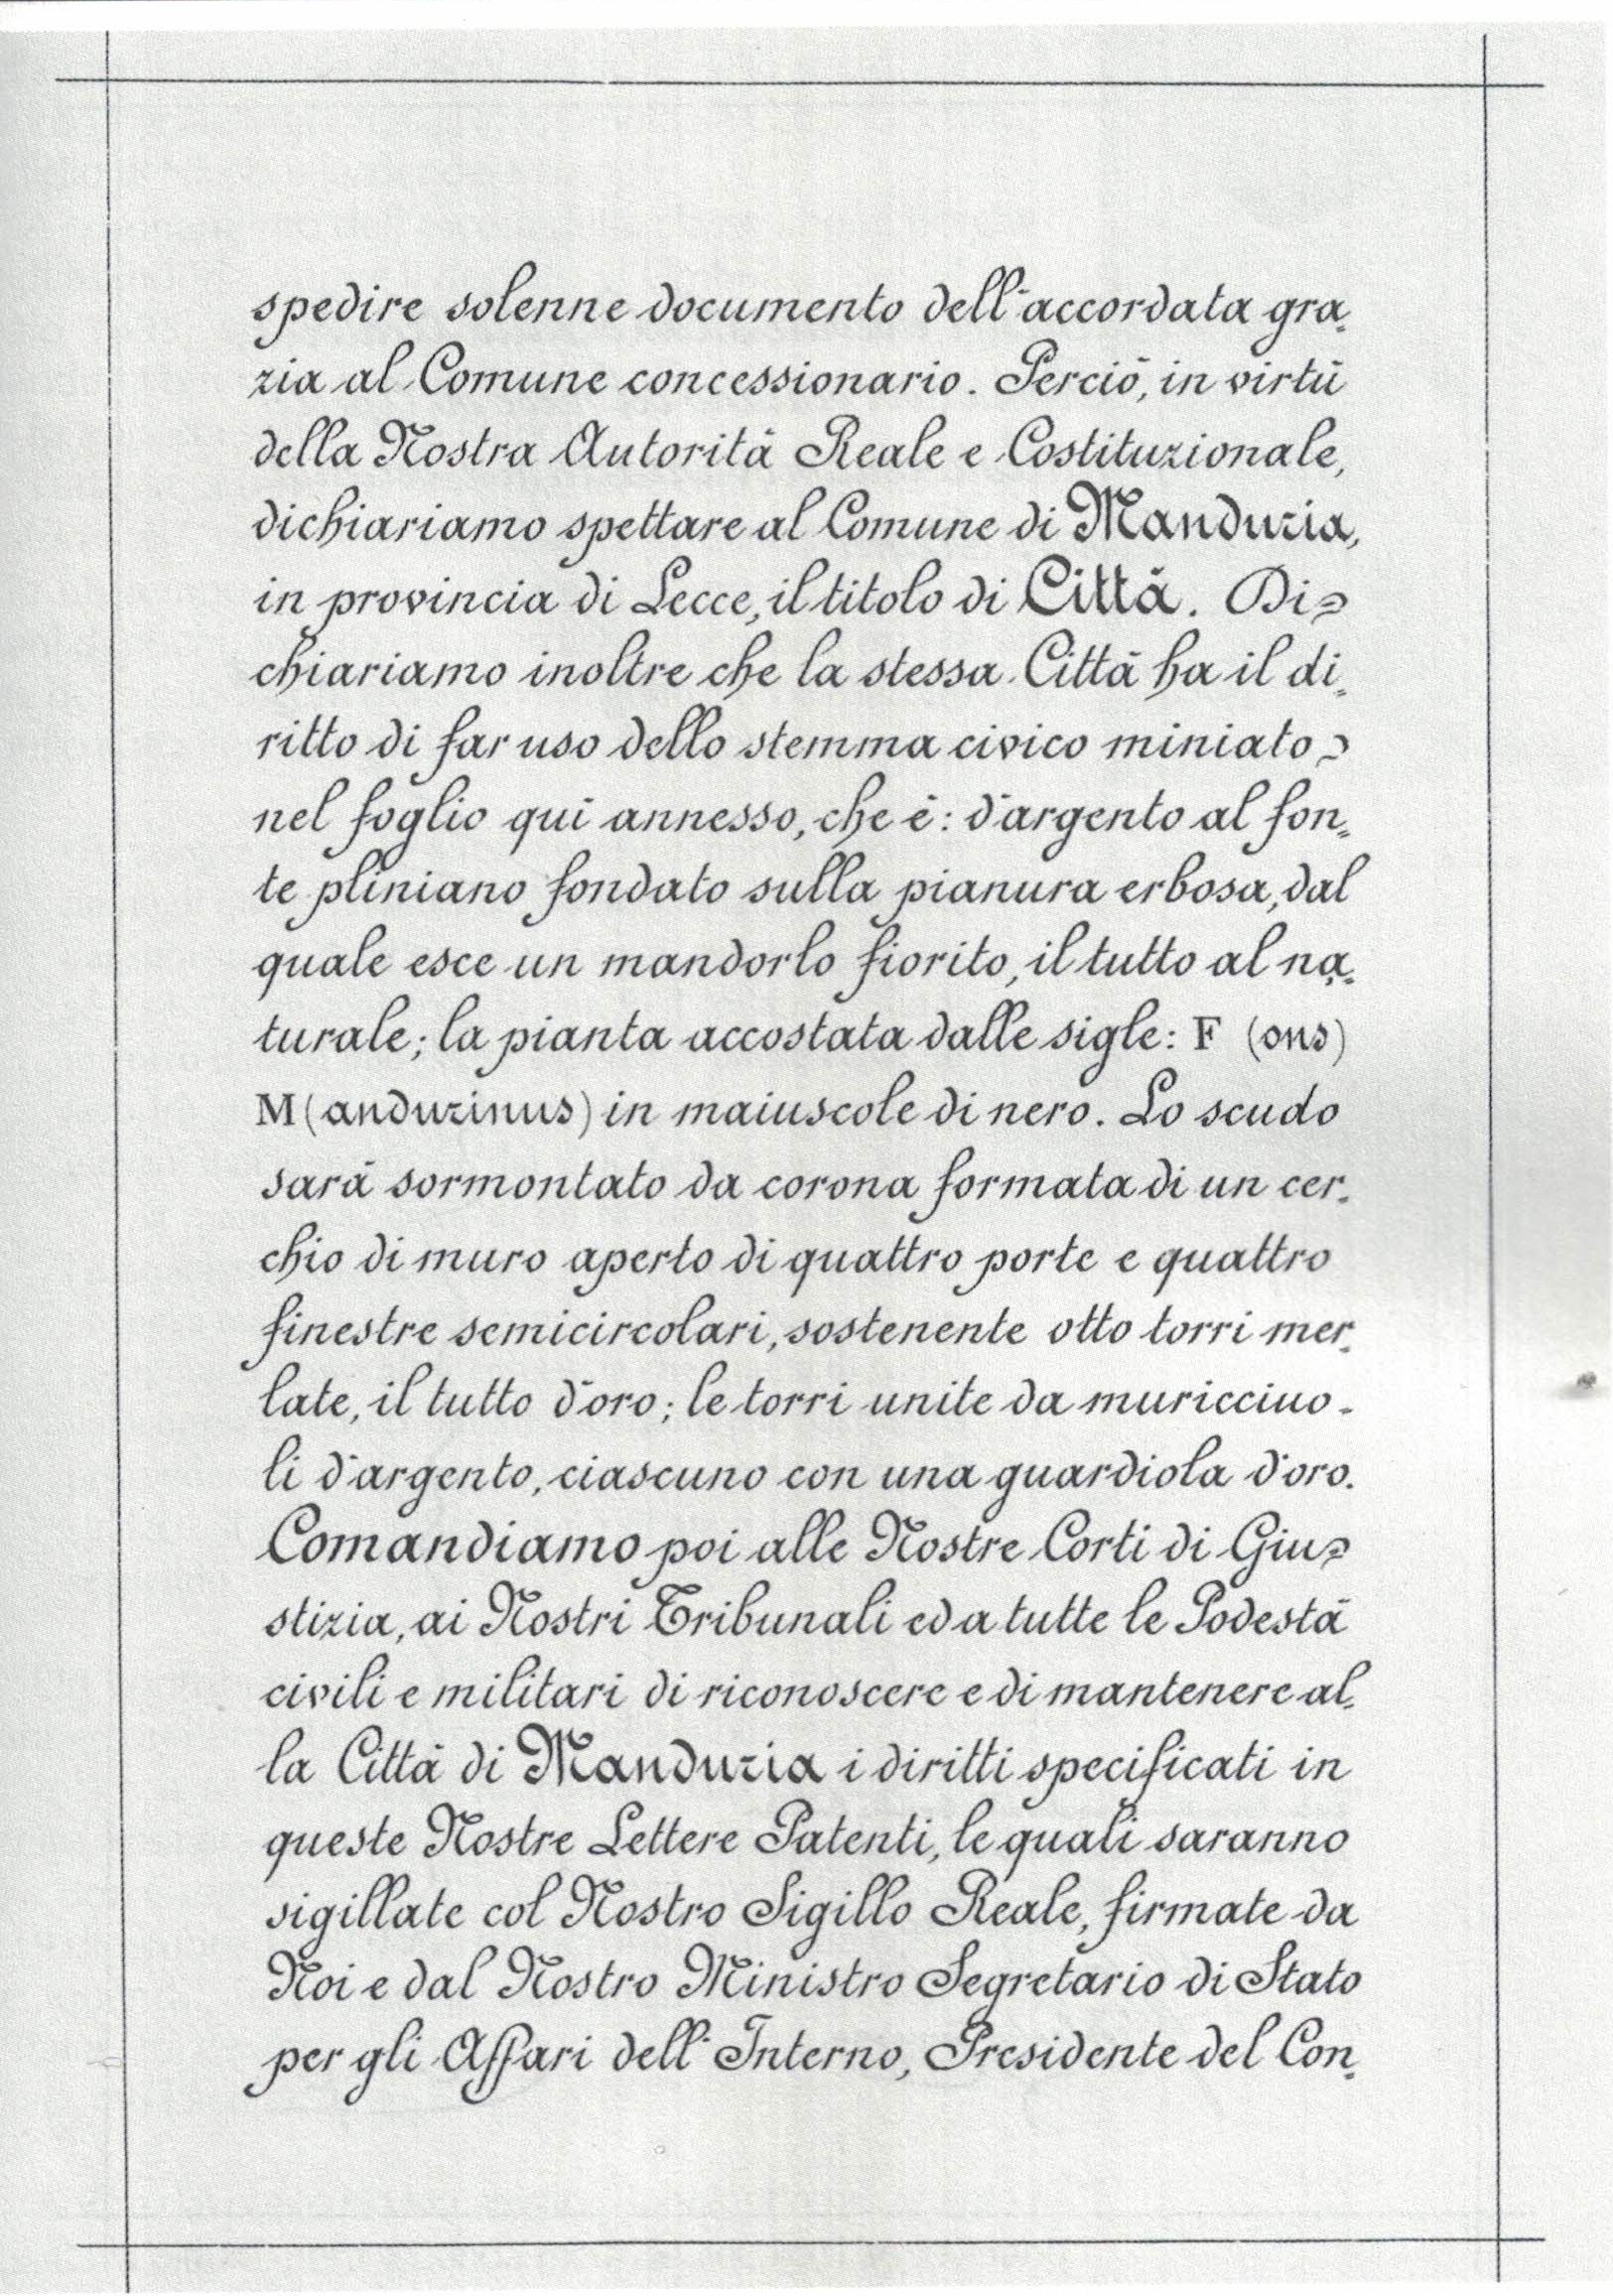 spedire solenne documento dell'accordata gra-
zia al Comune concessionario. Perciò, in virtù
della Nostra Autorità Reale e Costituzionale,
dichiariamo spettare al Comune di Manduria,
in provincia di Lecce, il titolo di Città. Di-
chiariamo inoltre che la stessa Città ha il di-
ritto di far uso dello stemma civico miniato
nel foglio qui annesso, che è: d'argento al fon-
te pliniano fondato sulla pianura erbosa, dal
quale esce un mandorlo fiorito, il tutto al na-
turale; la pianta accostata dalle sigle: F (ons)
M(andurinus) in maiuscole di nero. Lo scudo
sarà sormontato da corona formata di un cer-
chio di muro aperto di quattro porte e quattro
finestre semicircolari, sostenente otto torri mer-
late, il tutto d'oro; le torri unite da muricciuo-
li d'argento, ciascuno con una guardiola d'oro.
Comandiamo poi alle Nostre Corti di Giu-
stizia, ai Nostri Tribunali ed a tutte le Podestà
civili e militari di riconoscere e di mantenere al-
la Città di Manduria i diritti specificati in
queste Nostre Lettere Patenti, le quali saranno
sigillate col Nostro Sigillo Reale, firmate da
Noi e dal Nostro Ministro Segretario di Stato
per gli Affari dell'Interno, Presidente del Con-